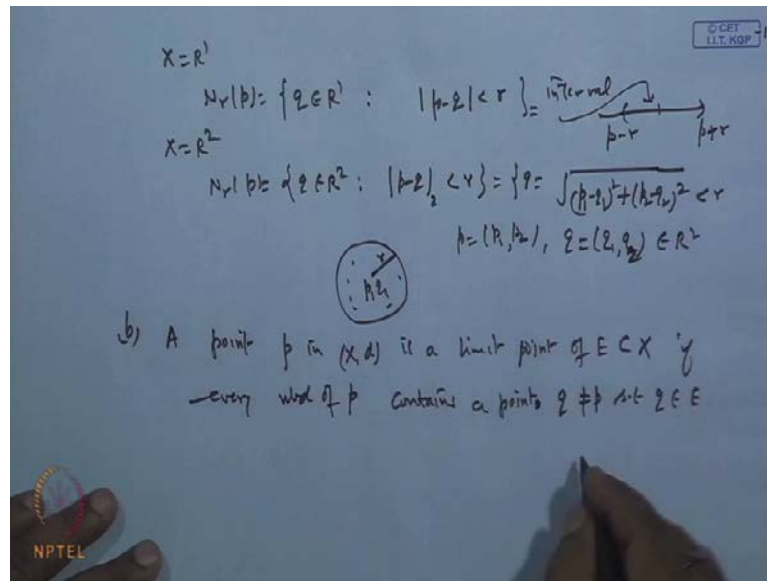 © CET
I.I.T. KGP
X = R¹
Nr(p) = { q ∈ R¹ : |p-q| < r } = interval
p-r p+r
X = R²
Nr(p) = { q ∈ R² : |p-q|₂ < r } = { q = √(p₁-q₁)²+(p₂-q₂)² < r
p = (p₁, p₂), q = (q₁, q₂) ∈ R²
r
b) A point p in (X, d) is a limit point of E ⊂ X if
every nbd of p contains a points q ≠ p s.t. q ∈ E
NPTEL